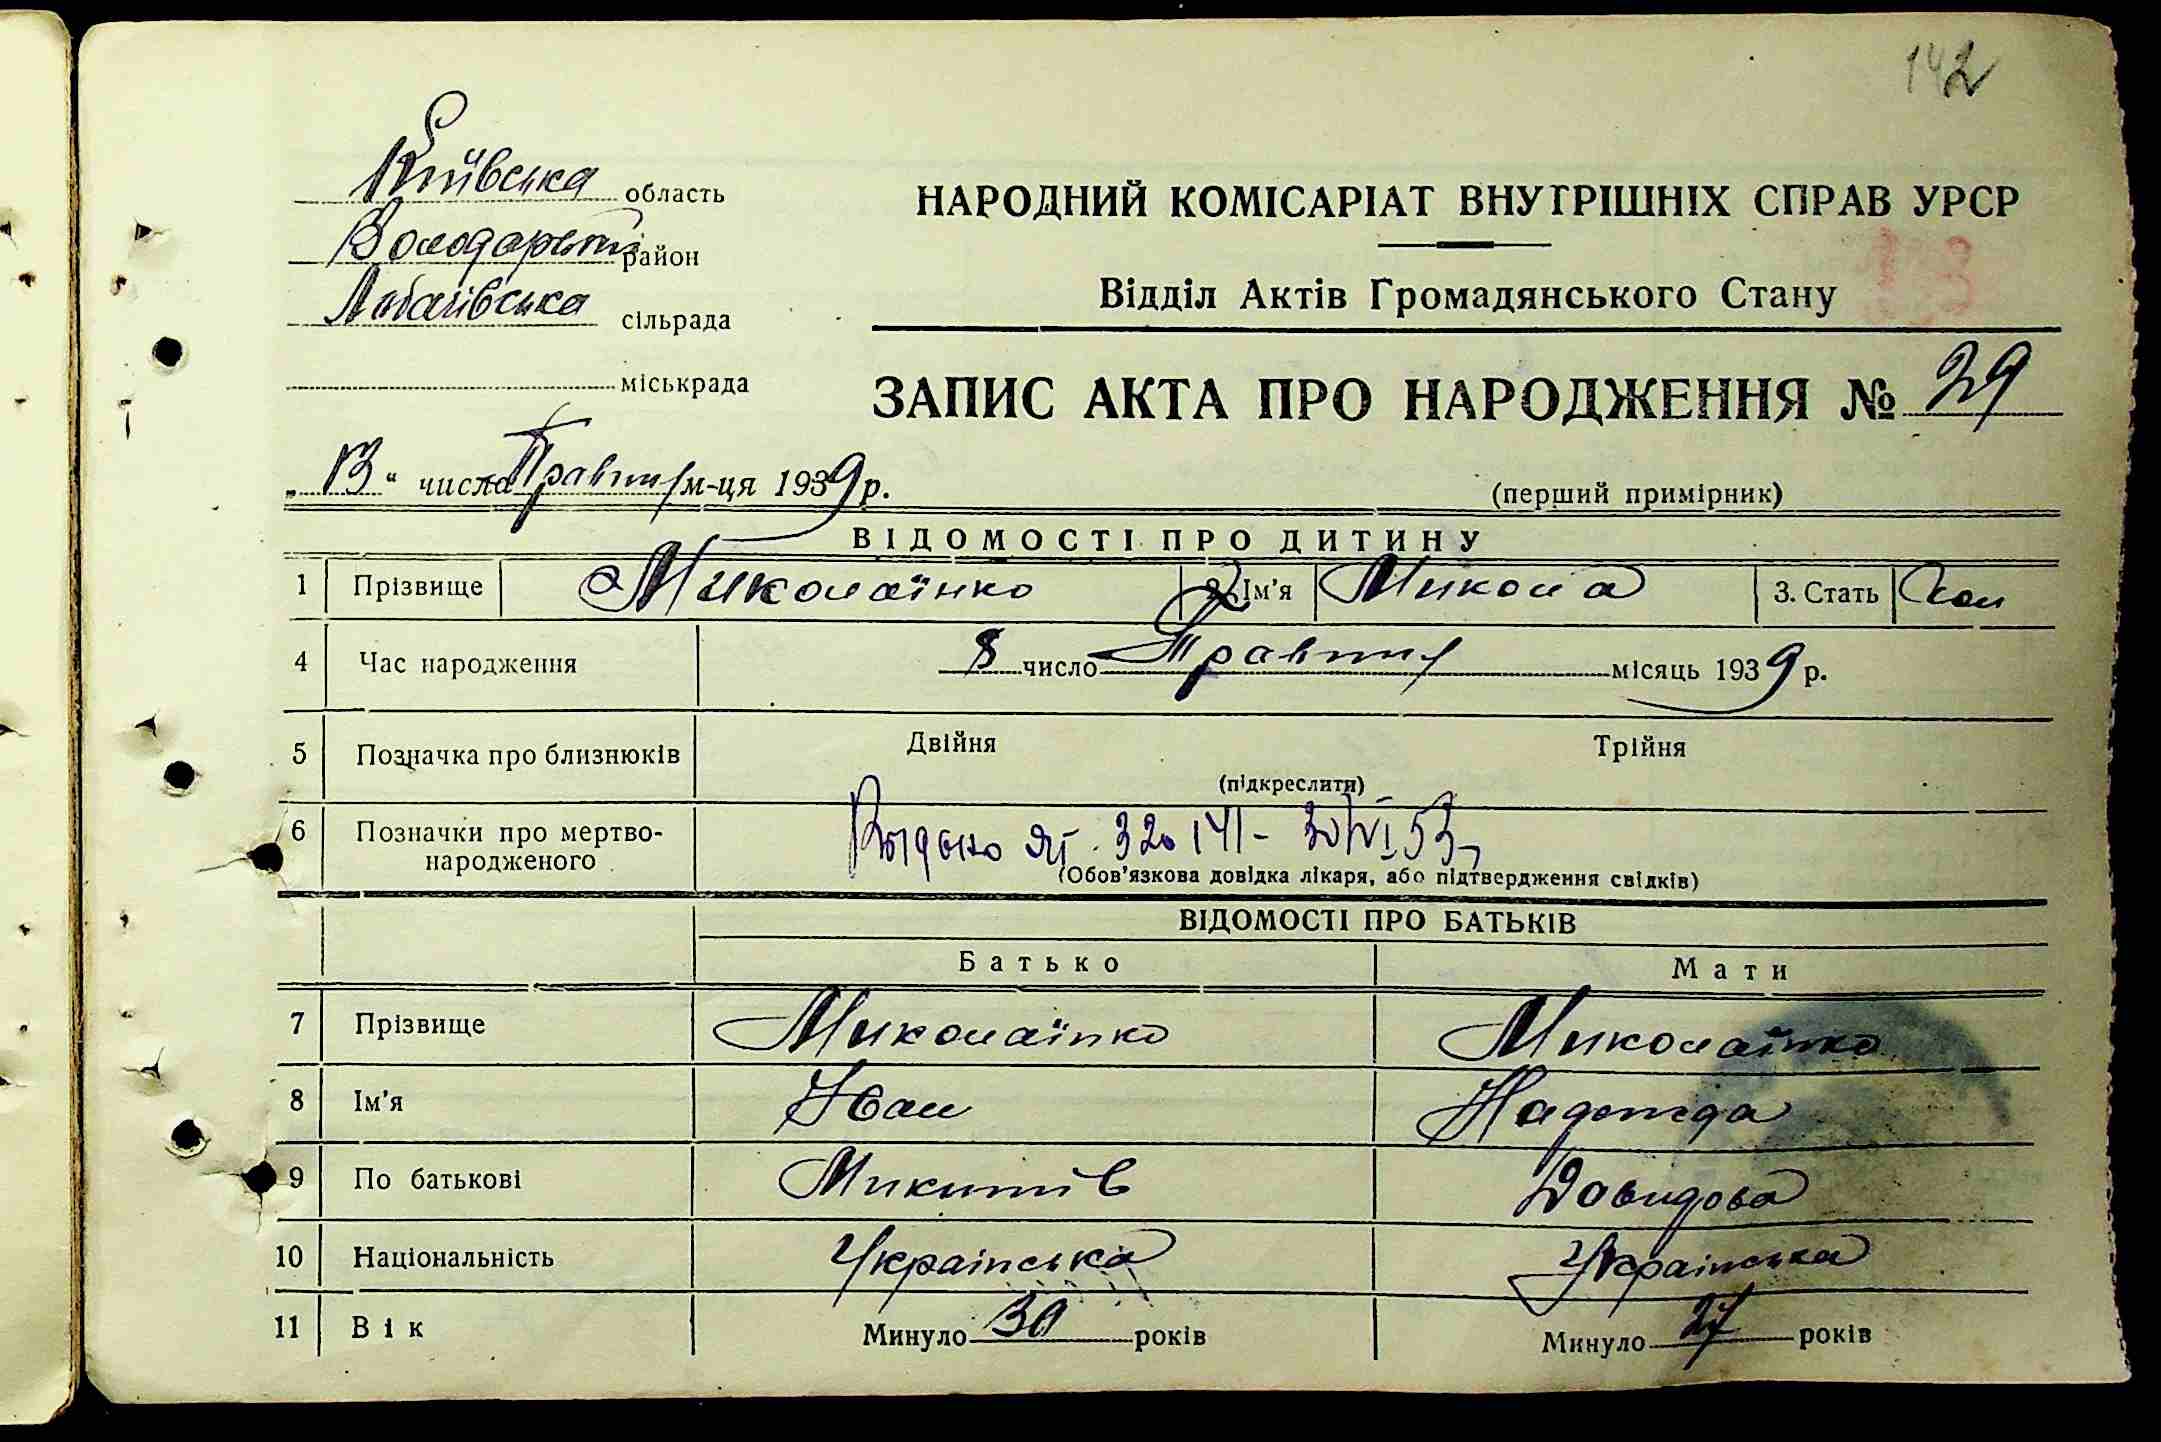 142
Київська область
Володарський район
Лобачівська сільрада
міськрада
НАРОДНИЙ КОМІСАРІАТ ВНУТРІШНІХ СПРАВ УРСР
Відділ Актів Громадянського Стану
ЗАПИС АКТА ПРО НАРОДЖЕННЯ № 29
„ 13 “ числа Травня м-ця 1939 р.
(перший примірник)
ВІДОМОСТІ ПРО ДИТИНУ
1 Прізвище Миколаїнко 2. Ім'я Микола 3. Стать чол
4 Час народження 8 число Травня місяць 1939 р.
5 Позначка про близнюків Двійня Трійня
(підкреслити)
6 Позначки про мертво-
народженого
Выдано 30/VI 53
(Обов'язкова довідка лікаря, або підтвердження свідків)
ВІДОМОСТІ ПРО БАТЬКІВ
Батько Мати
7 Прізвище Миколаїнко Миколаїнко
8 Ім'я Іван Надежда
9 По батькові Микитів Давидова
10 Національність Українська Українська
11 Вік Минуло 30 років Минуло 27 років